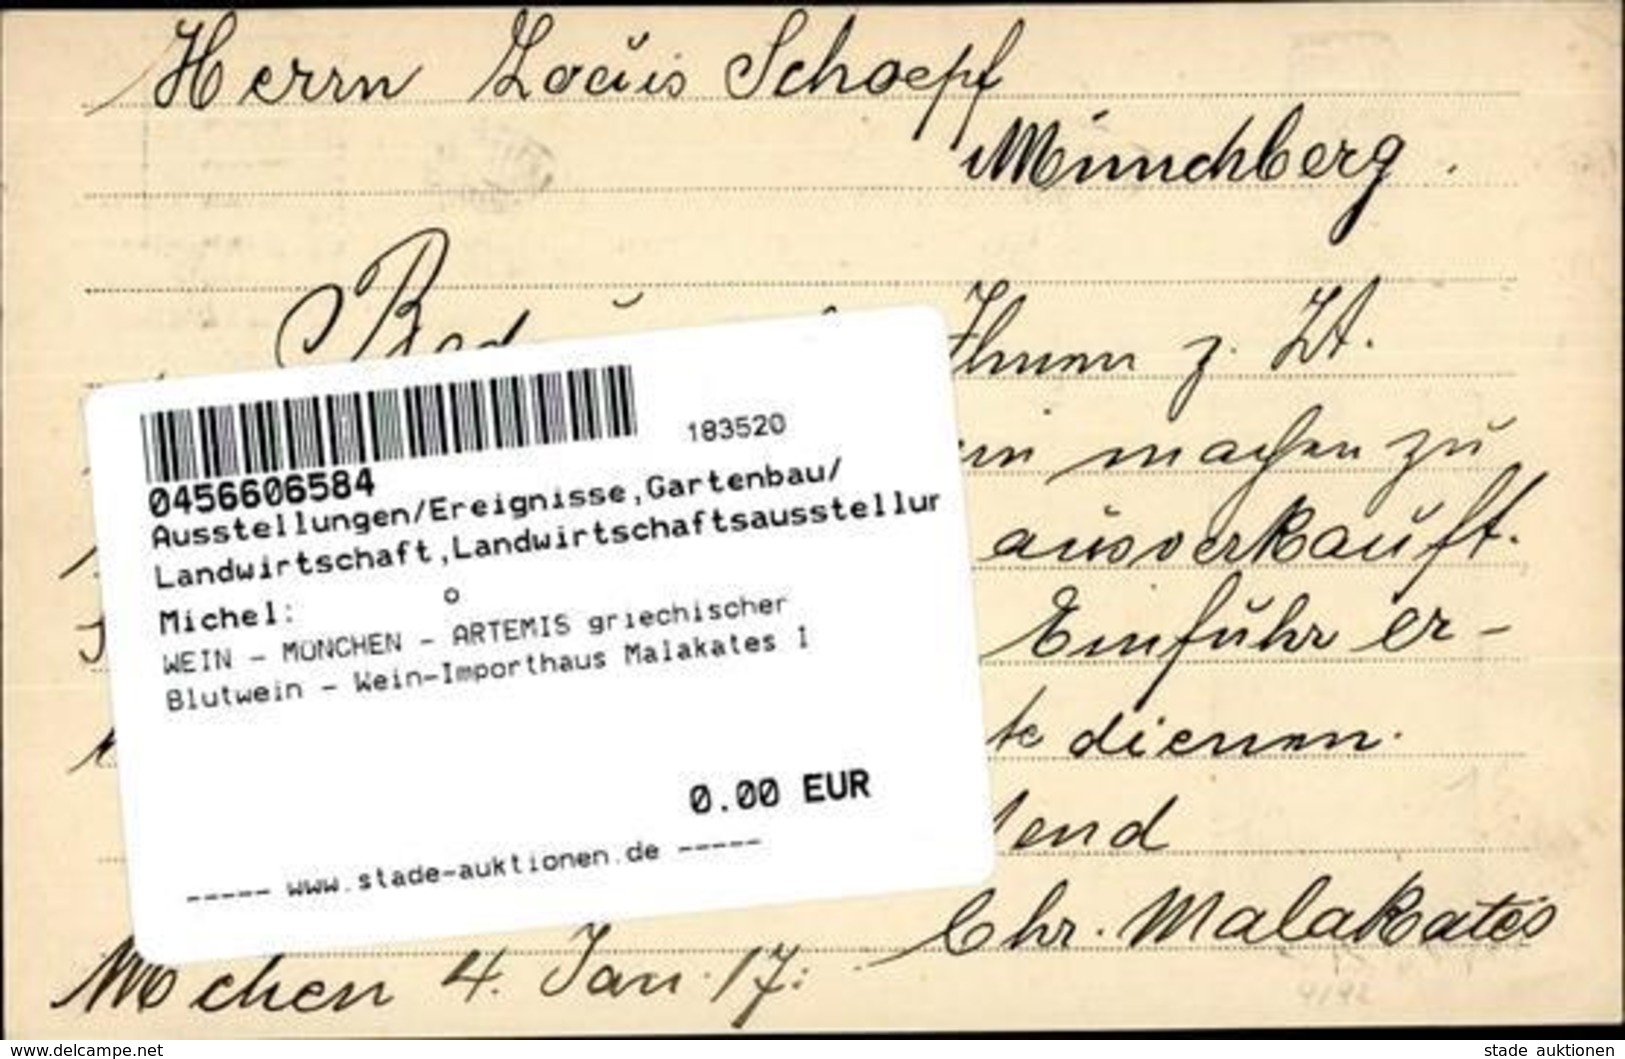 Herrn Louis Schoepf
Münchberg.
Ihnen z. Zt.
machen zu
ausverkauft.
Einfuhr er-
dienen.
Chr. Malakates
Mchen 4. Jan. 17.
183520
0456606584
Ausstellungen/Ereignisse,Gartenbau/
Landwirtschaft,Landwirtschaftsausstellur
Michel: o
WEIN - MÜNCHEN - ARTEMIS griechischer
Blutwein - Wein-Importhaus Malakates I
0.00 EUR
----- www.stade-auktionen.de -----
4192
www.delcampe.net
stade auktionen